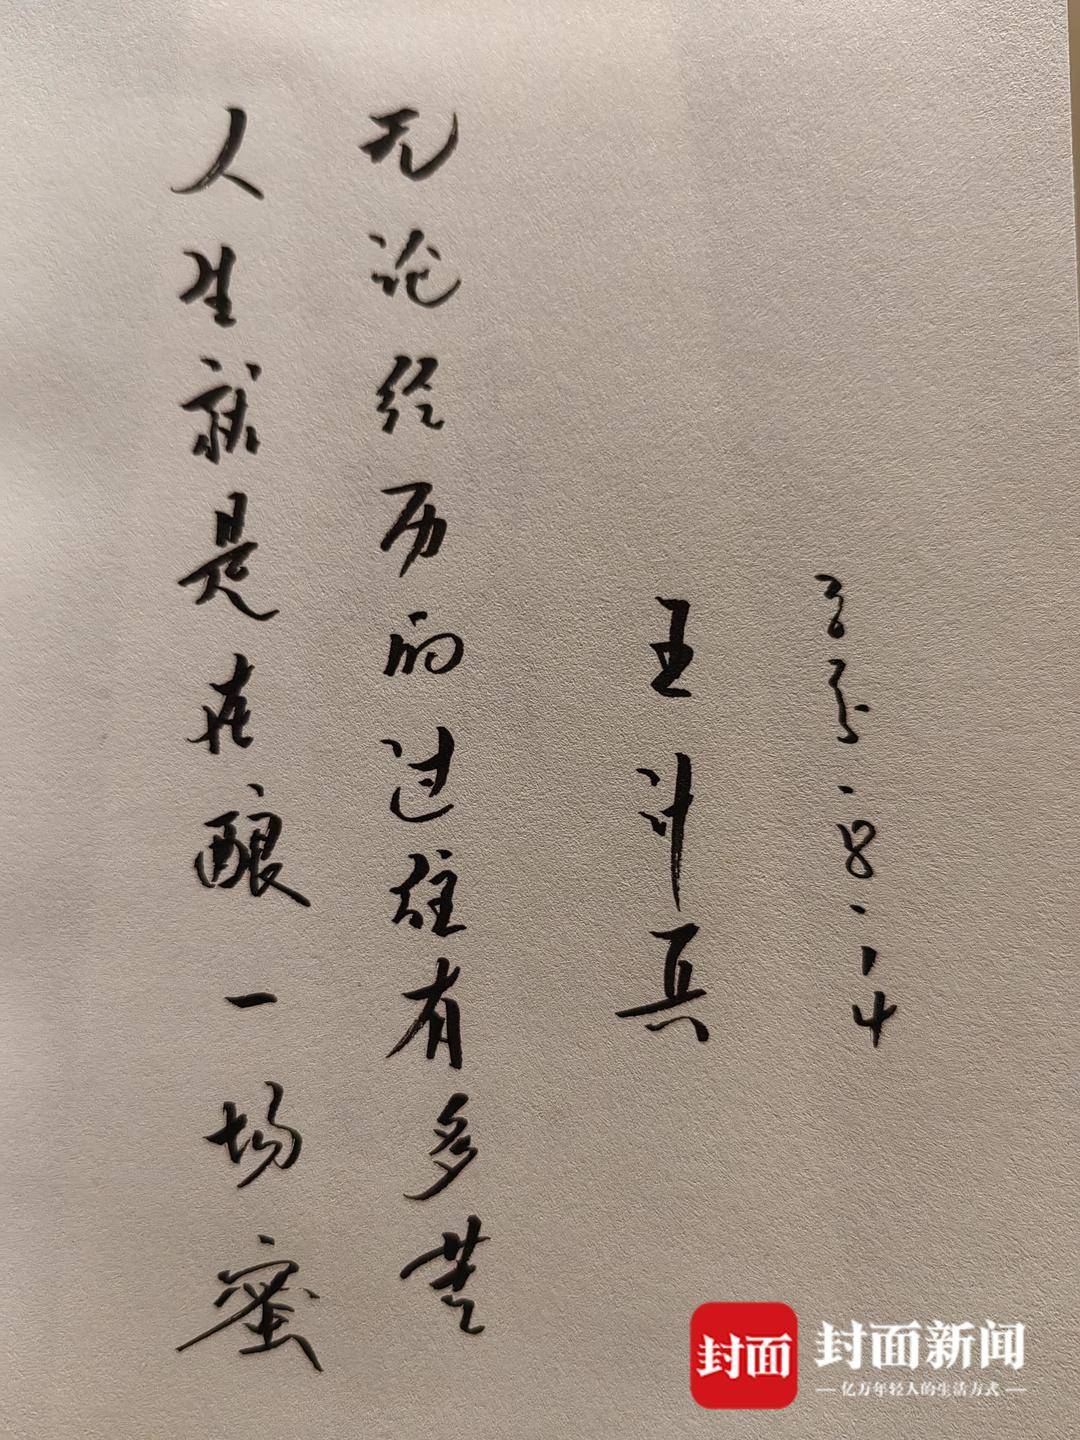 人生就是在酿一场蜜
无论经历的过往有多苦
王计兵
8.14
封面
封面新闻
亿万年轻人的生活方式